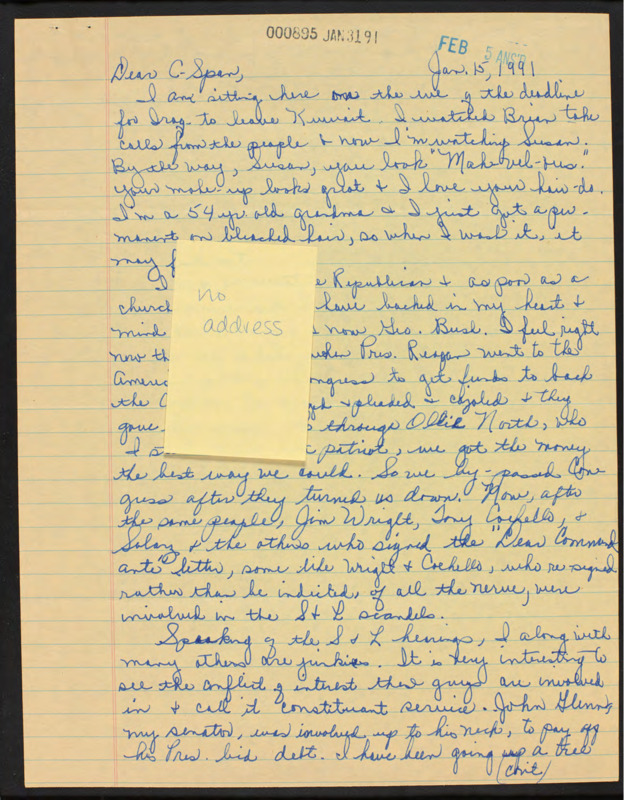 000895 JAN3191
FEB 5 ANS'D
Dear C-Span, Jan. 15, 1991
I am sitting here on the eve of the deadline
for Iraq to leave Kuwait. I watched Brian take
calls from the people & now I'm watching Susan.
By the way, Susan, you look "Mah-vel-ous."
Your make-up looks great & I love your hair-do.
I'm a 54 yr. old grandma & I just got a per-
manent on bleached hair, so when I wash it, it
may
I Republican & as poor as a
church have backed in my heart &
mind now Geo. Bush. I feel right
now th when Pres. Reagan went to the
Americ ongress to get funds to back
the & pleaded & cajoled & they
gave through Ollie North, who
I s patriot, we got the money
the best way we could. So we by-passed Con-
gress after they turned us down. Now, after
the same people, Jim Wright, Tony Coehello, &
Solarz & the others who signed the "Dear Command
ante" letter, some like Wright & Coehello, who re-signed
rather than be indicted, of all the nerve, were
involved in the S & L scandels.
Speaking of the S & L hearings, I along with
many others are junkies. It is very interesting to
see the conflict of interest these guys are involved
in & call it constituant service. John Glenn,
my senator, was involved up to his neck, to pay off
his Pres. bid debt. I have been going up a tree
(con't)
no
address